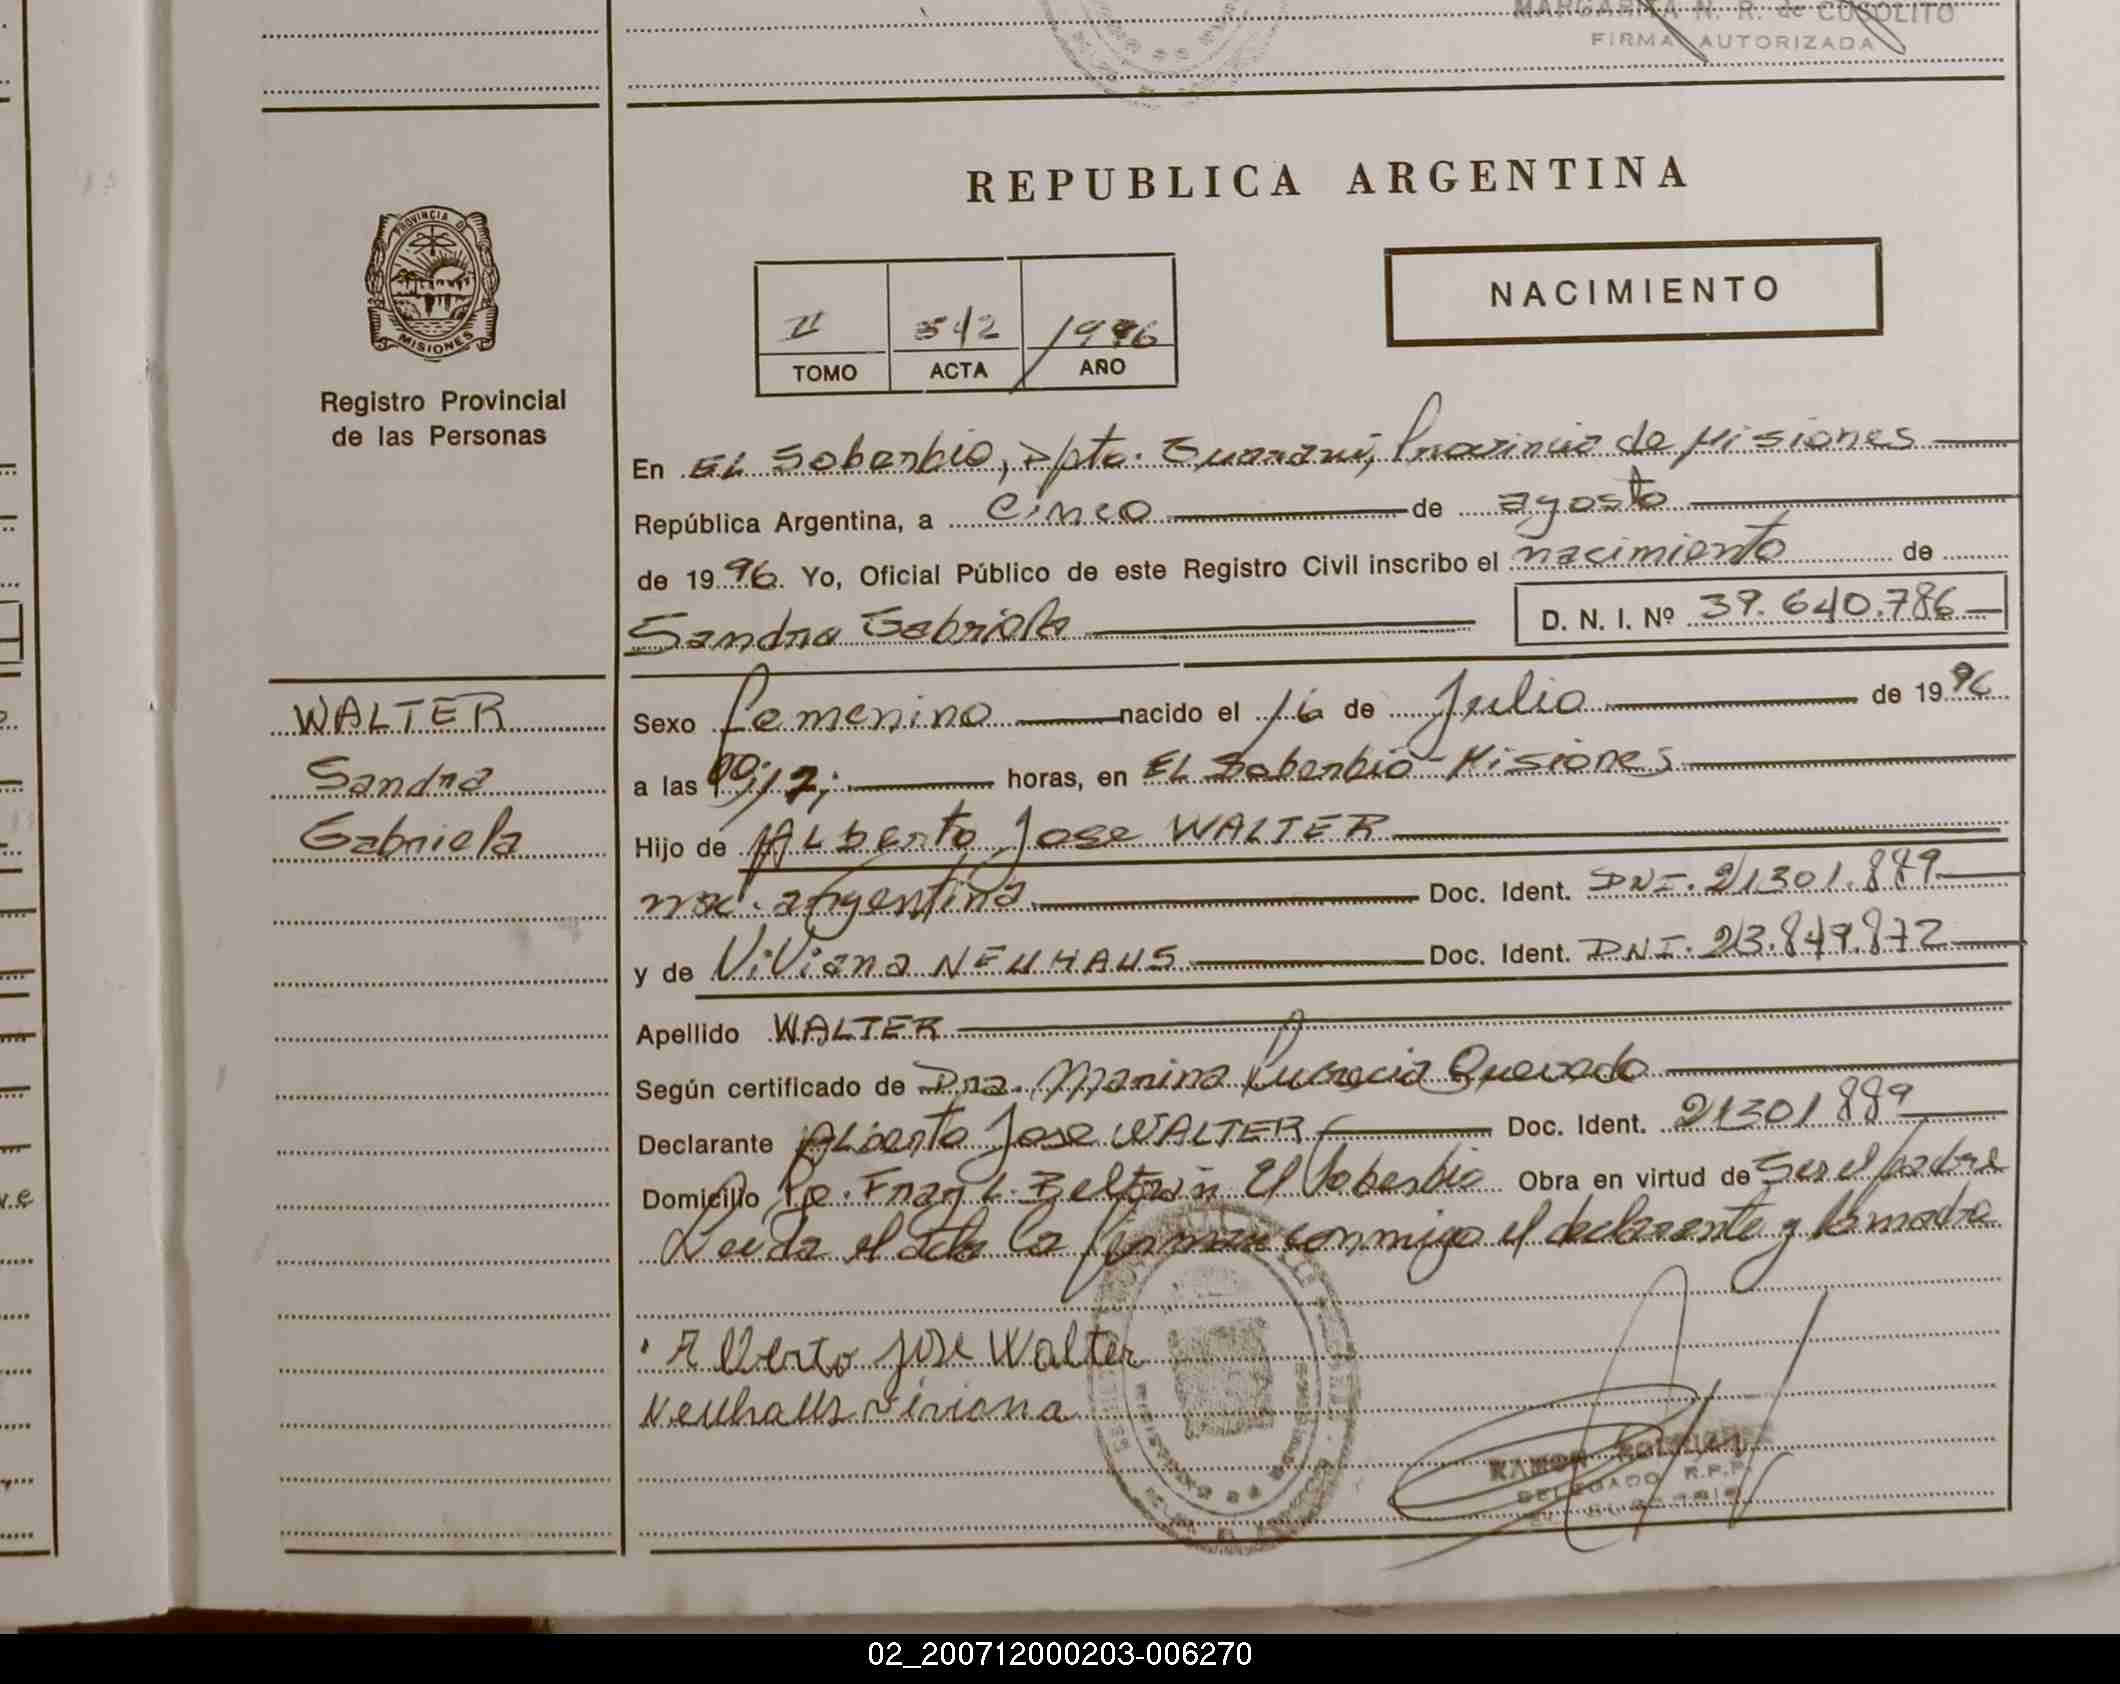 MARGARITA N. R. de CUSOLITO
FIRMA AUTORIZADA
PROVINCIA DE
MISIONES
Registro Provincial
de las Personas
REPUBLICA ARGENTINA
NACIMIENTO
II 542 1996
TOMO ACTA AÑO
En EL Soberbio, Dpto. Guarani, Provincia de Misiones
República Argentina, a cinco de agosto
de 1996. Yo, Oficial Público de este Registro Civil inscribo el nacimiento de
Sandra Gabriela
D. N. I. Nº 39.640.786
WALTER
Sandra
Gabriela
Sexo femenino nacido el 16 de Julio de 1996
a las 00,12, horas, en EL Soberbio-Misiones
Hijo de ALberto Jose WALTER
nac. argentina Doc. Ident. DNI. 21301.889
y de ViViana NEUHAUS Doc. Ident. DNI. 23.849.872
Apellido WALTER
Según certificado de Dra. Marina Lucrecia Quevedo
Declarante ALberto Jose WALTER Doc. Ident. 21301889
Domicilio Pje. Fray L. Beltran El Soberbio Obra en virtud de Ser el padre
Leida el acta la firman conmigo el declarante y la madre
Alberto jose Walter
Neuhaus viviana
RAMON
DELEGADO R.P.P.
02_200712000203-006270